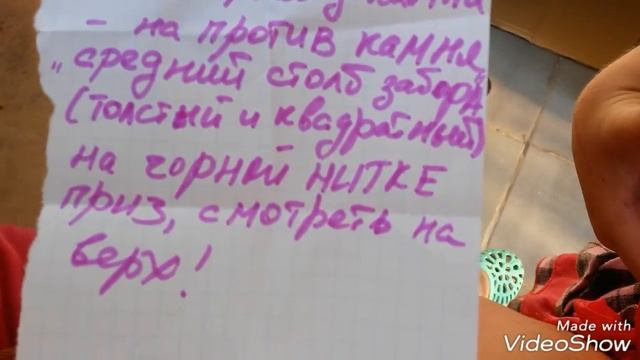 - на против камня
„средний столб забора"
(толстый и квадратный)
на чорней НИТКЕ
приз, смотреть на
верх!
Made with
VideoShow